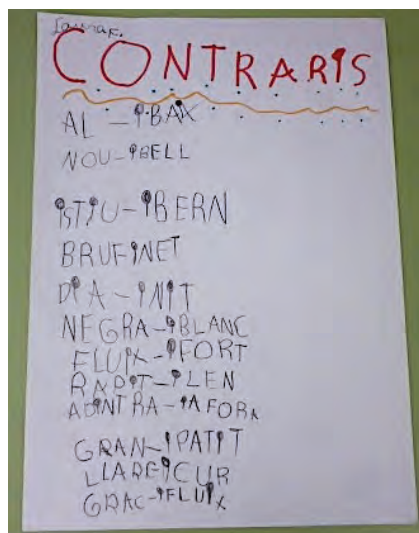 CONTRARIS
AL - IBAIX
NOU - IBELL
ISTIU - IBERN
BRUFINET
DIA - INIT
NEGRA - IBLANC
FLUIX - IFORT
RAPIT - ILEN
ADINTRA - IAFORA
GRAN - IPATIT
LLARGICUR
GRAC - IFLUIX